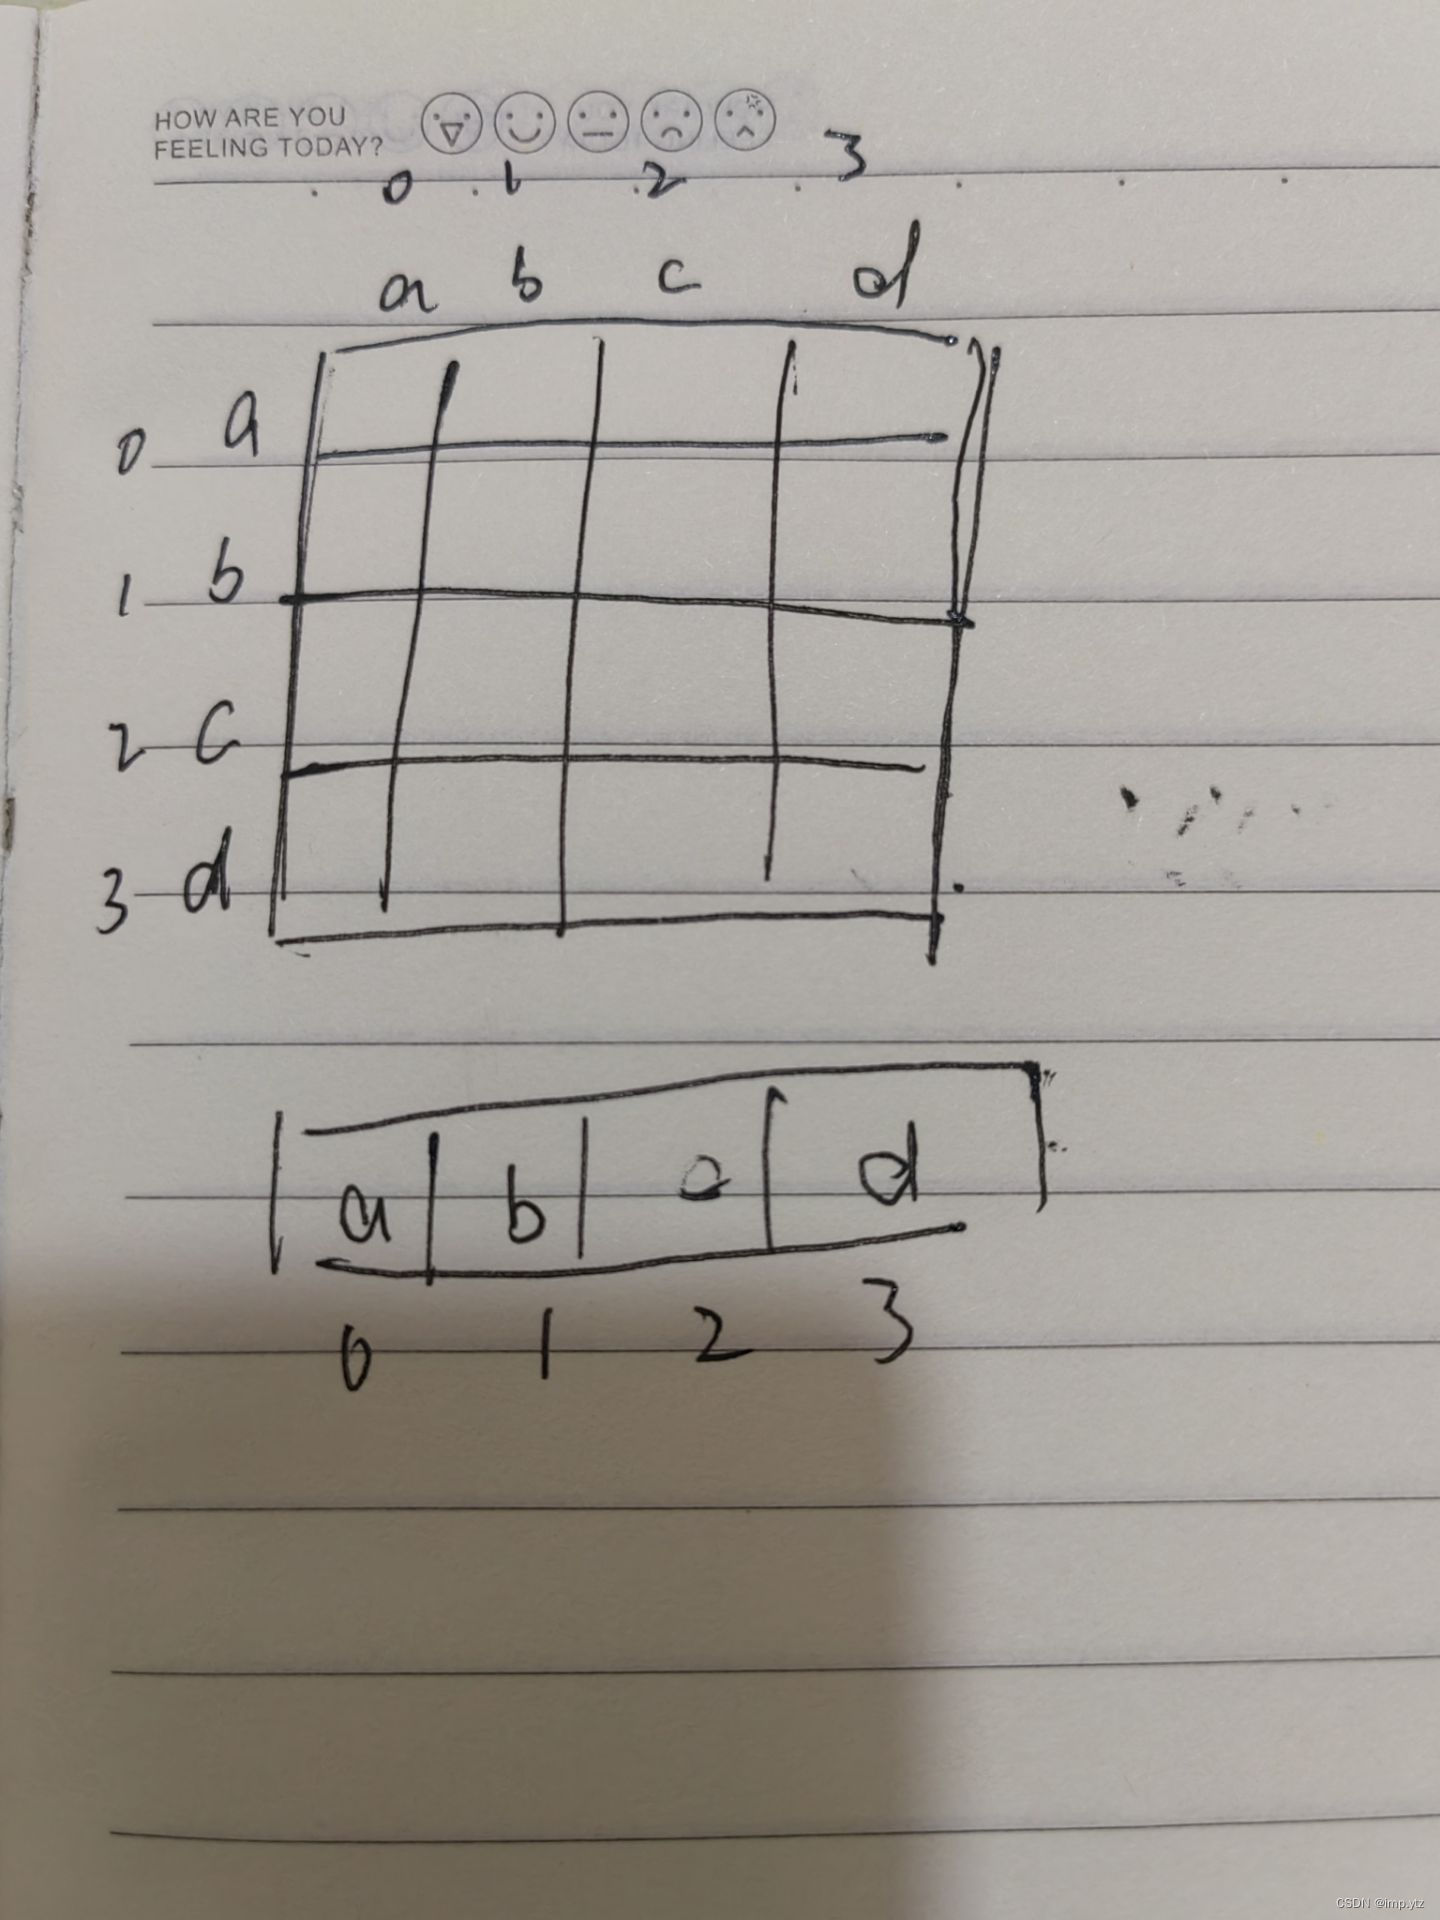 HOW ARE YOU
FEELING TODAY?
0 1 2 3
a b c d
0 a
1 b
2 c
3 d
a b c d
0 1 2 3
CSDN @imp.ytz